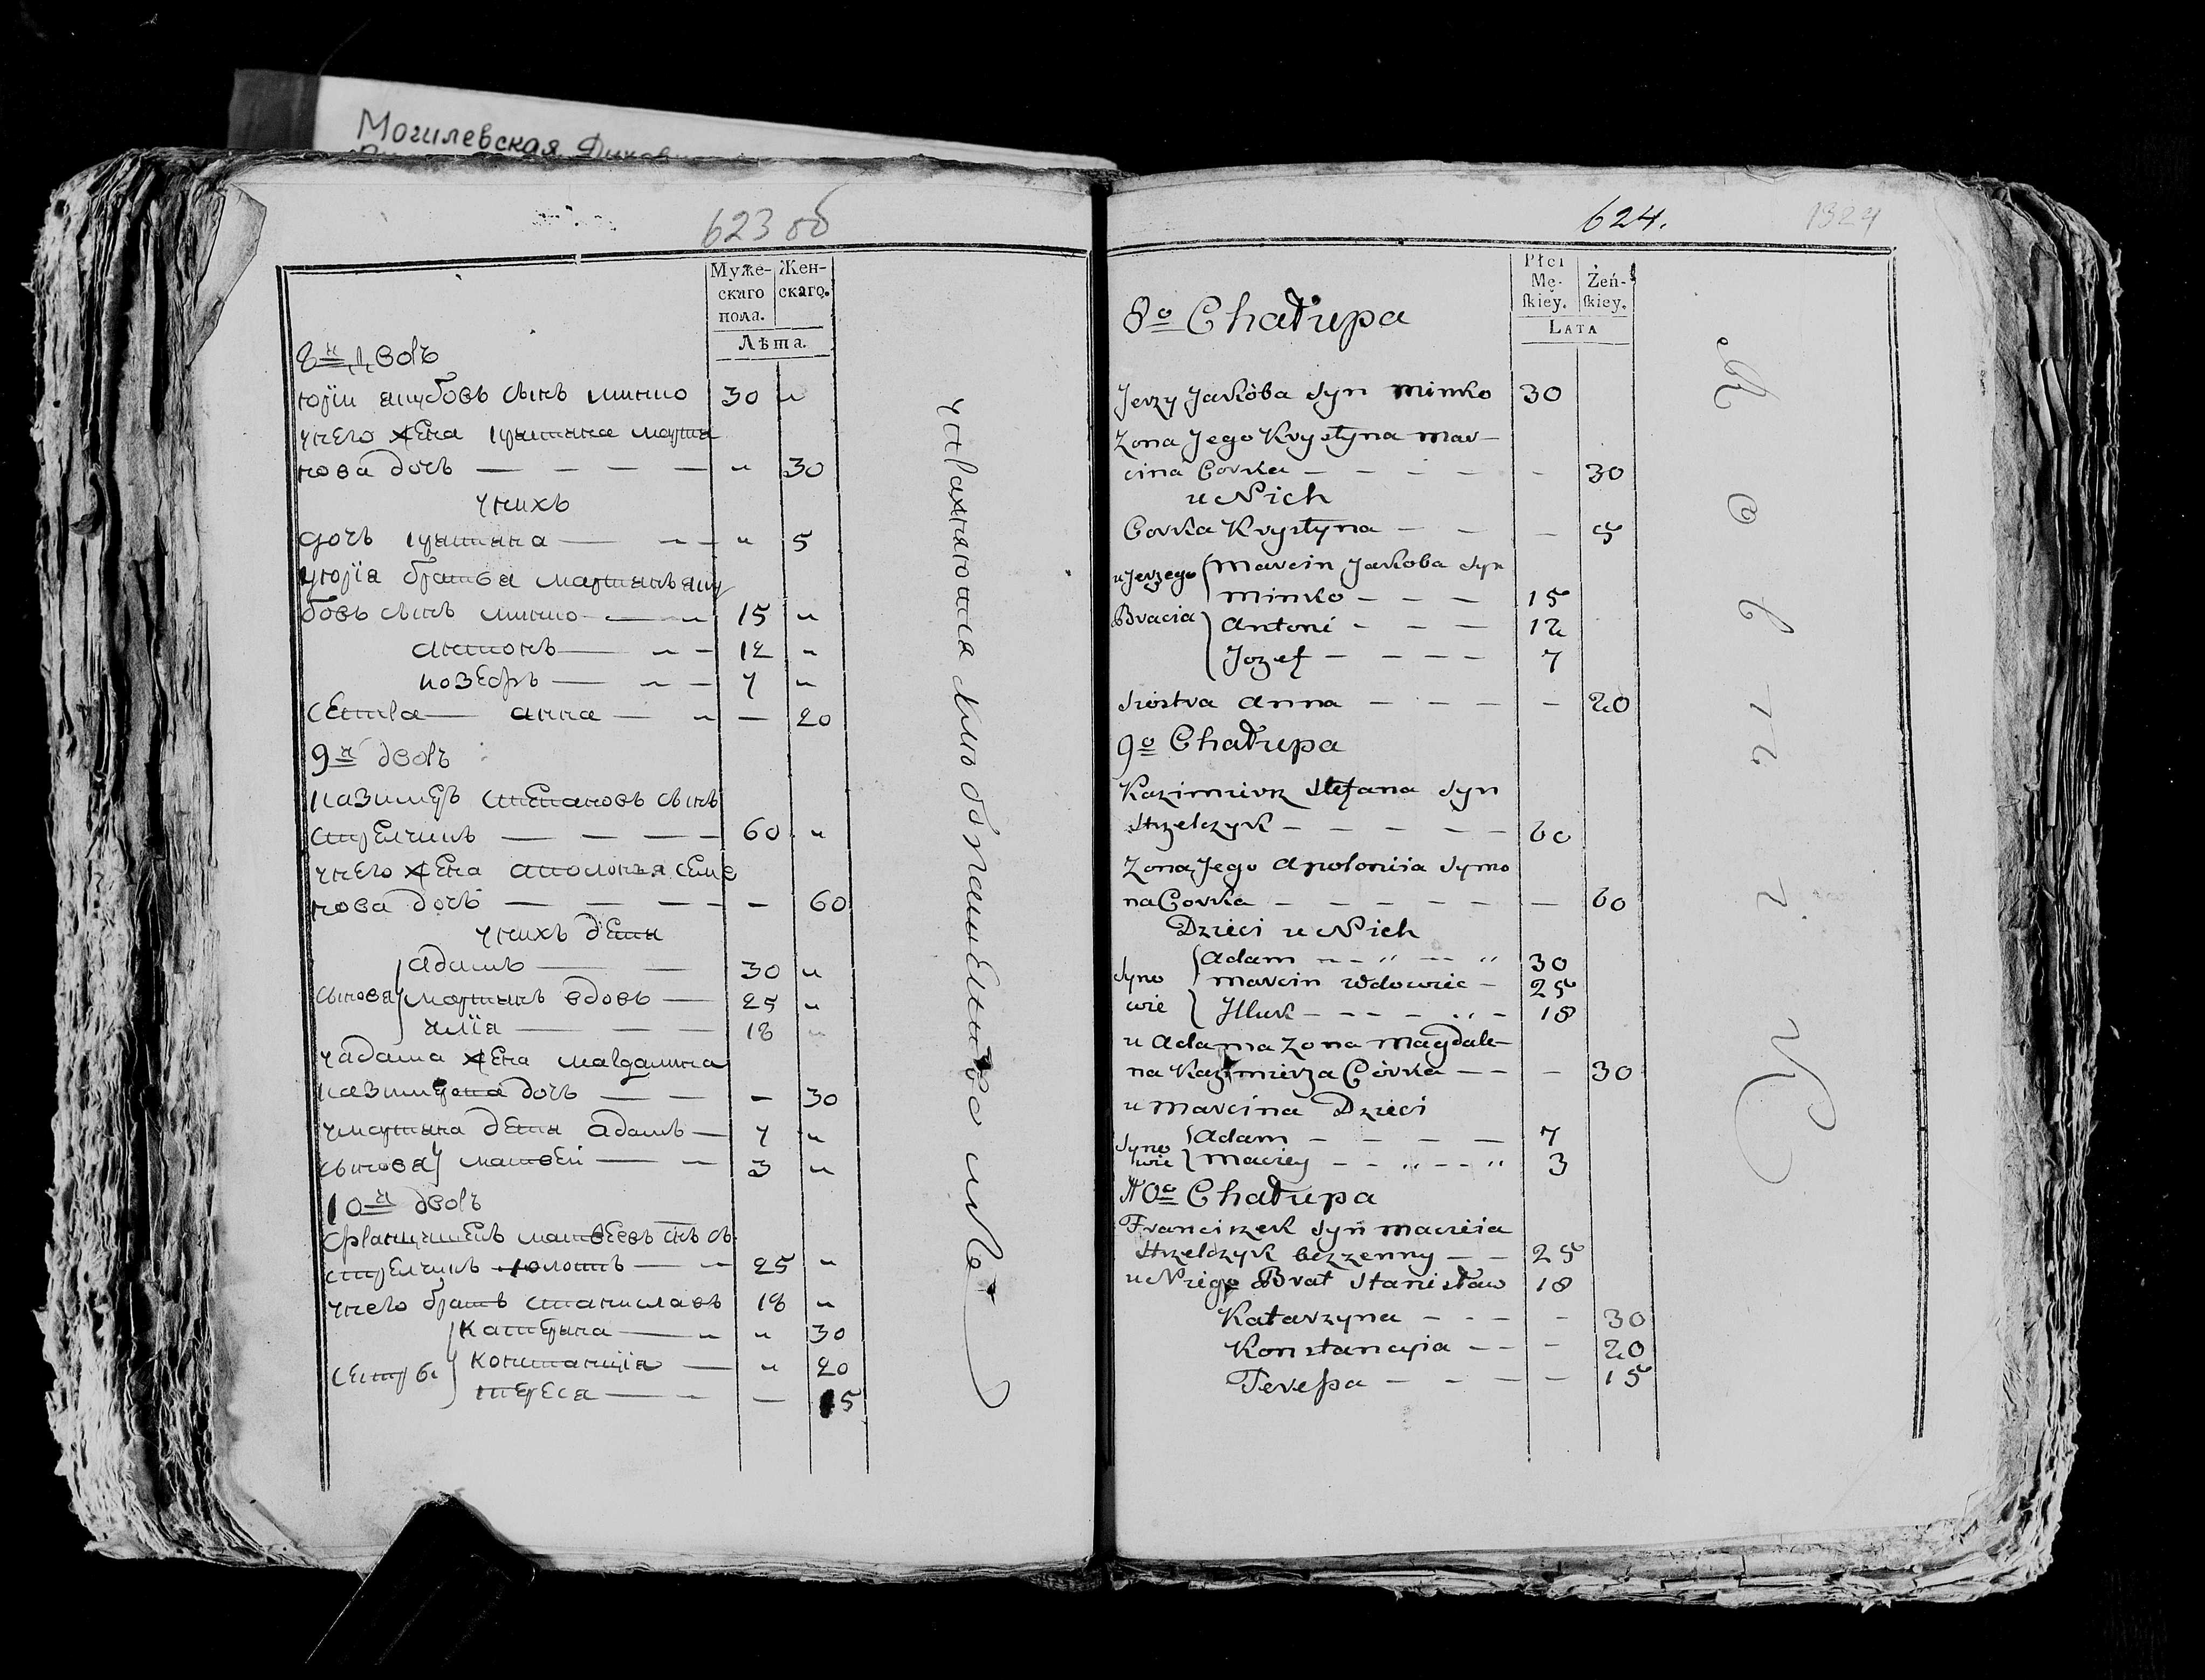 Могилевская Духовн
623 об
Муже-
скаго
пола.
Жен-
скаго.
Лѣта.
8й дворъ
юріи якубовъ сынъ минко 30 „
унего жена кристина марти
нова дочь — — — — „ 30
унихъ
дочь кристина — — „ 5
уюрія братья мартинъ яку
бовъ сынъ минко — — 15 „
антонъ — — 12 „
иозефъ — — 7 „
сестра — анна — — 20
9й дворъ
казимеръ степановъ сынъ
стрелчикъ — — — — 60 „
унего жена аполонья семе
нова дочь — — — — — 60
унихъ дети
сынова
адамъ — — 30 „
мартинъ вдовъ — 25 „
илія — — — 18 „
уадама жена магдалина
казимера дочь — — — 30
умартина дети адамъ — 7 „
сынова матвей — — 3 „
10й дворъ
францишекъ матвеевъ снъ
стрелчикъ холостъ — — 25 „
унего братъ станиславъ 18 „
сестры
катерина — — „ 30
констанція — „ 20
тереса — — — 15
624.
1324
Płci
Mę-
skiey.
Żeń-
skiey.
LATA
8o Chałupa
Jerzy Jakóba Syn Minko 30
Zona Jego Krystyna Mar-
cina Corka — — — — — 30
u Nich
Corka Krystyna — — — 5
u Jerzego
Bracia
Marcin Jakoba Syn
Minko — — — 15
Antoni — — — 12
Jozef — — — — 7
Siostra Anna — — — — — 20
9o Chałupa
Kazimierz Stefana Syn
Strzelczyk — — — — — 60
Zona Jego Apolonija Symo
na Corka — — — — — — 60
Dzieci u Nich
Syno
wie
Adam — — „ — — „ 30
Marcin Wdowiec — 25
Illuk — — — — „ — 18
u Adama Zona Magdale-
na Kazimierza Córka — — — 30
u Marcina Dzieci
Syno
wie
Adam — — — — 7
Maciey — — „ — — „ 3
10o Chałupa
Franciszek Syn Macieia
Strzelczyk bezzenny — — 25
u Niego Brat Stanisław 18
Katarzyna — — — — 30
Konstancyia — — — 20
Teressa — — — — 15